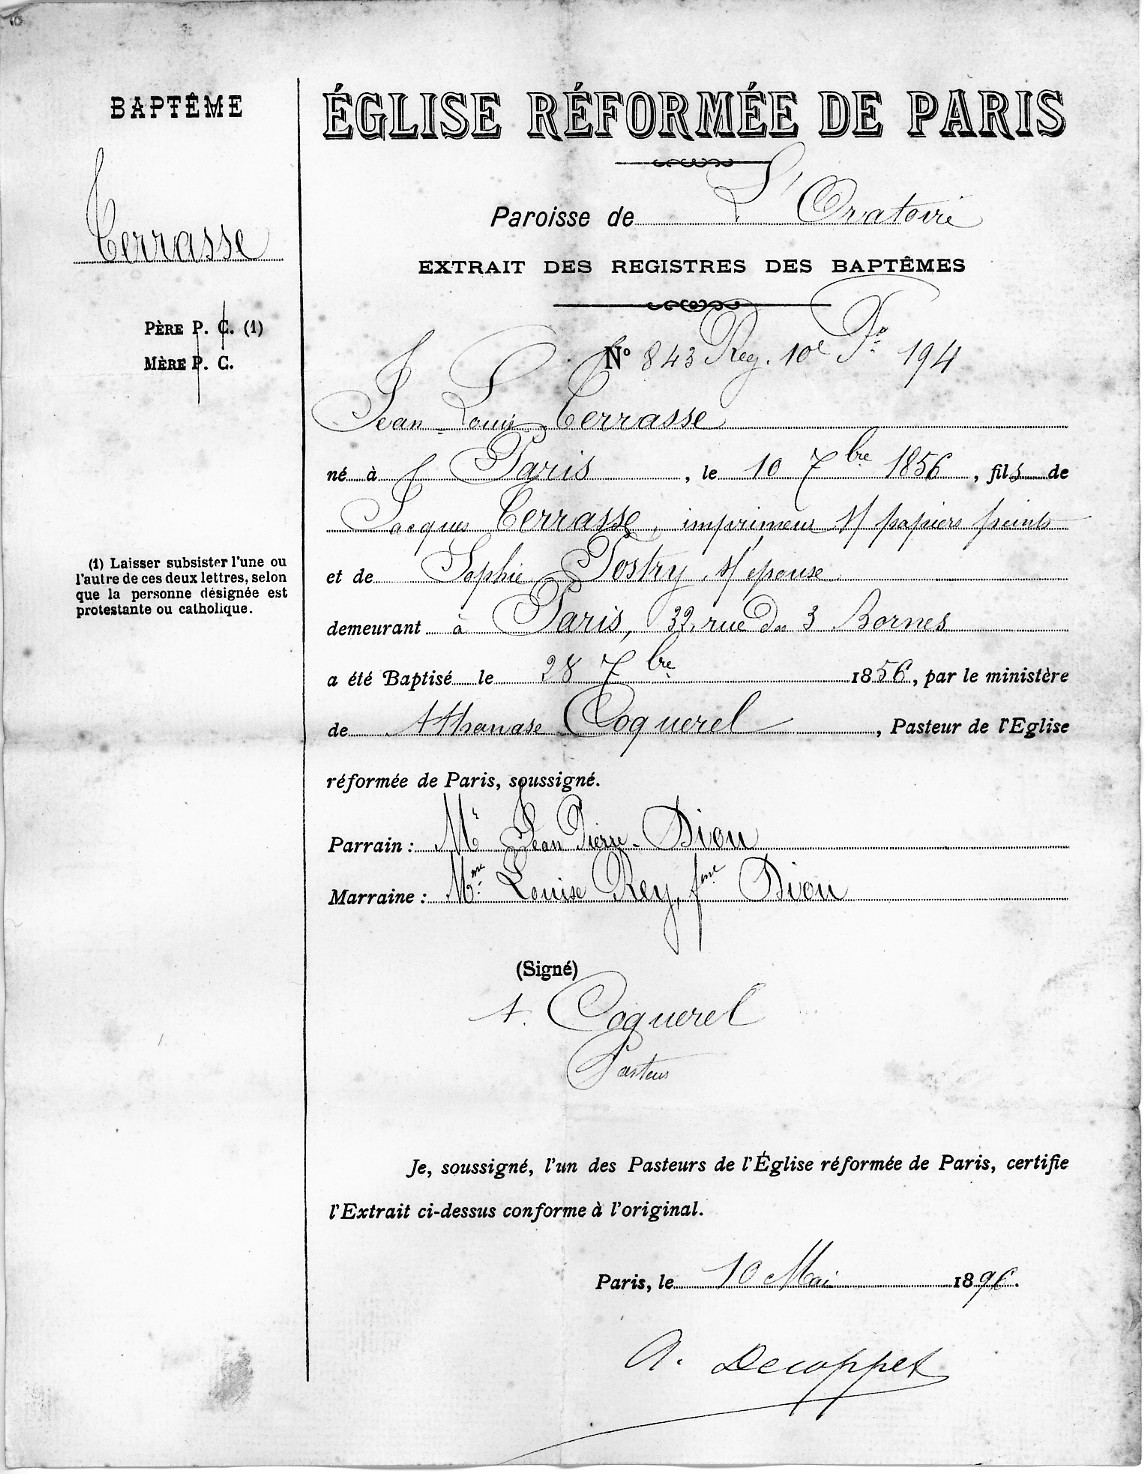 BAPTÊME
Terrasse
PÈRE P. C. (1)
MÈRE P. C.
(1) Laisser subsister l'une ou
l'autre de ces deux lettres, selon
que la personne désignée est
protestante ou catholique.
ÉGLISE RÉFORMÉE DE PARIS
Paroisse de L'Oratoire
EXTRAIT DES REGISTRES DES BAPTÊMES
N° 843 Reg. 10e Fo 194
Jean Louis Terrasse
né à Paris, le 10 7bre 1856, fils de
Jacques Terrasse, imprimeur s/ papiers peints
et de Sophie Tostry s/ épouse
demeurant à Paris, 32, rue des 3 Bornes
a été Baptisé le 28 7bre 1856, par le ministère
de Athanase Coquerel, Pasteur de l'Eglise
réformée de Paris, soussigné.
Parrain : Mr Jean Pierre Dion
Marraine : Mme Louise Rey, fme Dion
(Signé)
A. Coquerel
Pasteur
Je, soussigné, l'un des Pasteurs de l'Église réformée de Paris, certifie
l'Extrait ci-dessus conforme à l'original.
Paris, le 10 Mai 1896.
A. Decoppet